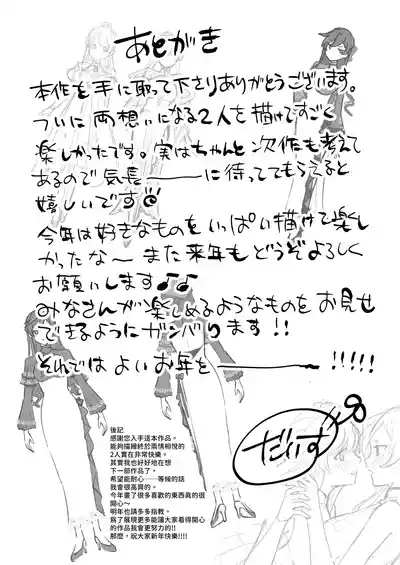 あとがき
本作を手に取って下さりありがとうございます。
ついに両想いになる2人を描けてすごく
楽しかったです。実はちゃんと次作も考えて
あるので気長――――に待っててもらえると
嬉しいです
今年は好きなものをいっぱい描けて楽し
かったな〜 また来年もどうぞよろしく
お願いします♪♪
みなさんが楽しめるようなものをお見せ
できるようにガンバります!!
それでは よいお年を――――!!!!!
だいず
後記
感謝您入手這本作品。
能夠描繪終於兩情相悅的
2人實在非常快樂。
其實我也好好地在想
下一部作品了,
希望能耐心──等候的話
我會很高興的。
今年畫了很多喜歡的東西真的很
開心～
明年也請多多指教。
為了展現更多能讓大家看得開心
的作品我會更努力的!!
那麼,祝大家新年快樂!!!!